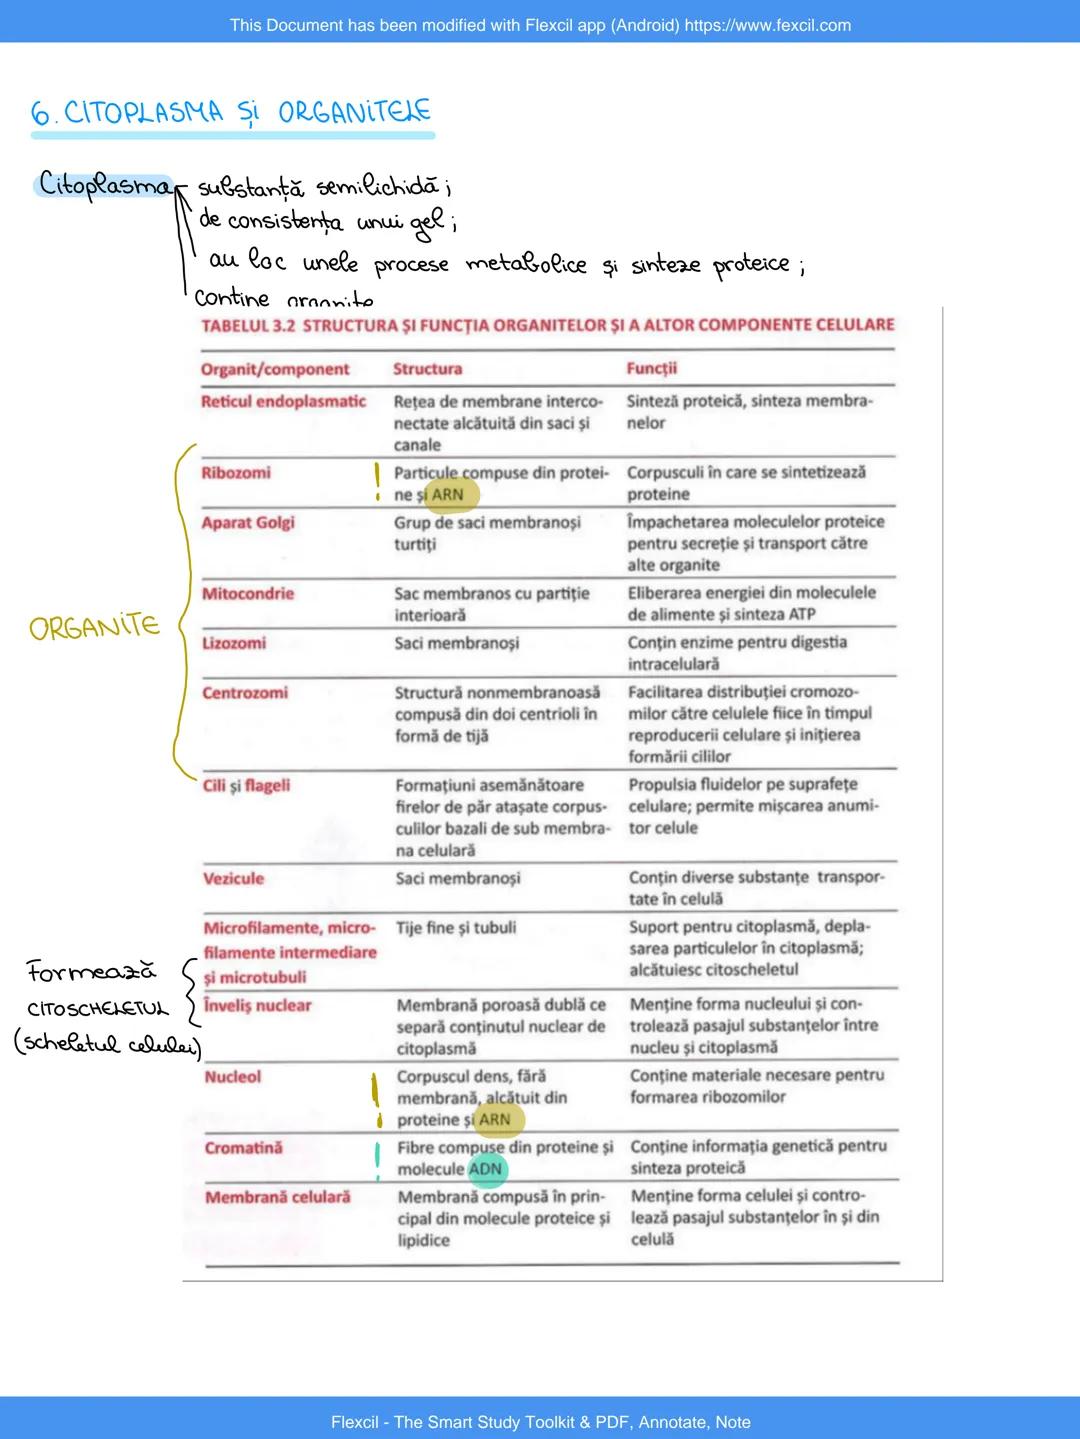 This Document has been modified with Flexcil app (Android) https://www.fexcil.com
6. CITOPLASMA ȘI ORGANITELE
Citoplasma substanță semilichidă ;
de consistența unui gel ;
au loc unele procese metabolice și sinteze proteice ;
conține organite
TABELUL 3.2 STRUCTURA ȘI FUNCȚIA ORGANITELOR ȘI A ALTOR COMPONENTE CELULARE
Organit/component Structura Funcții
Reticul endoplasmatic Rețea de membrane interco- Sinteză proteică, sinteza membra-
nectate alcătuită din saci și nelor
canale
Ribozomi ! Particule compuse din protei- Corpusculi în care se sintetizează
ne și ARN proteine
Aparat Golgi Grup de saci membranoși Împachetarea moleculelor proteice
turtiți pentru secreție și transport către
alte organite
Mitocondrie Sac membranos cu partiție Eliberarea energiei din moleculele
interioară de alimente și sinteza ATP
ORGANITE
Lizozomi Saci membranoși Conțin enzime pentru digestia
intracelulară
Centrozomi Structură nonmembranoasă Facilitarea distribuției cromozo-
compusă din doi centrioli în milor către celulele fiice în timpul
formă de tijă reproducerii celulare și inițierea
formării cililor
Cili și flageli Formațiuni asemănătoare Propulsia fluidelor pe suprafețe
firelor de păr atașate corpus- celulare; permite mișcarea anumi-
culilor bazali de sub membra- tor celule
na celulară
Vezicule Saci membranoși Conțin diverse substanțe transpor-
tate în celulă
Microfilamente, micro- Tije fine și tubuli Suport pentru citoplasmă, depla-
filamente intermediare sarea particulelor în citoplasmă;
și microtubuli alcătuiesc citoscheletul
Formează
CITOSCHELETUL
(scheletul celulei)
Înveliș nuclear Membrană poroasă dublă ce Menține forma nucleului și con-
separă conținutul nuclear de trolează pasajul substanțelor între
citoplasmă nucleu și citoplasmă
Nucleol ! Corpuscul dens, fără Conține materiale necesare pentru
membrană, alcătuit din formarea ribozomilor
proteine și ARN
Cromatină ! Fibre compuse din proteine și Conține informația genetică pentru
molecule ADN sinteza proteică
Membrană celulară Membrană compusă în prin- Menține forma celulei și contro-
cipal din molecule proteice și lează pasajul substanțelor în și din
lipidice celulă
Flexcil - The Smart Study Toolkit & PDF, Annotate, Note